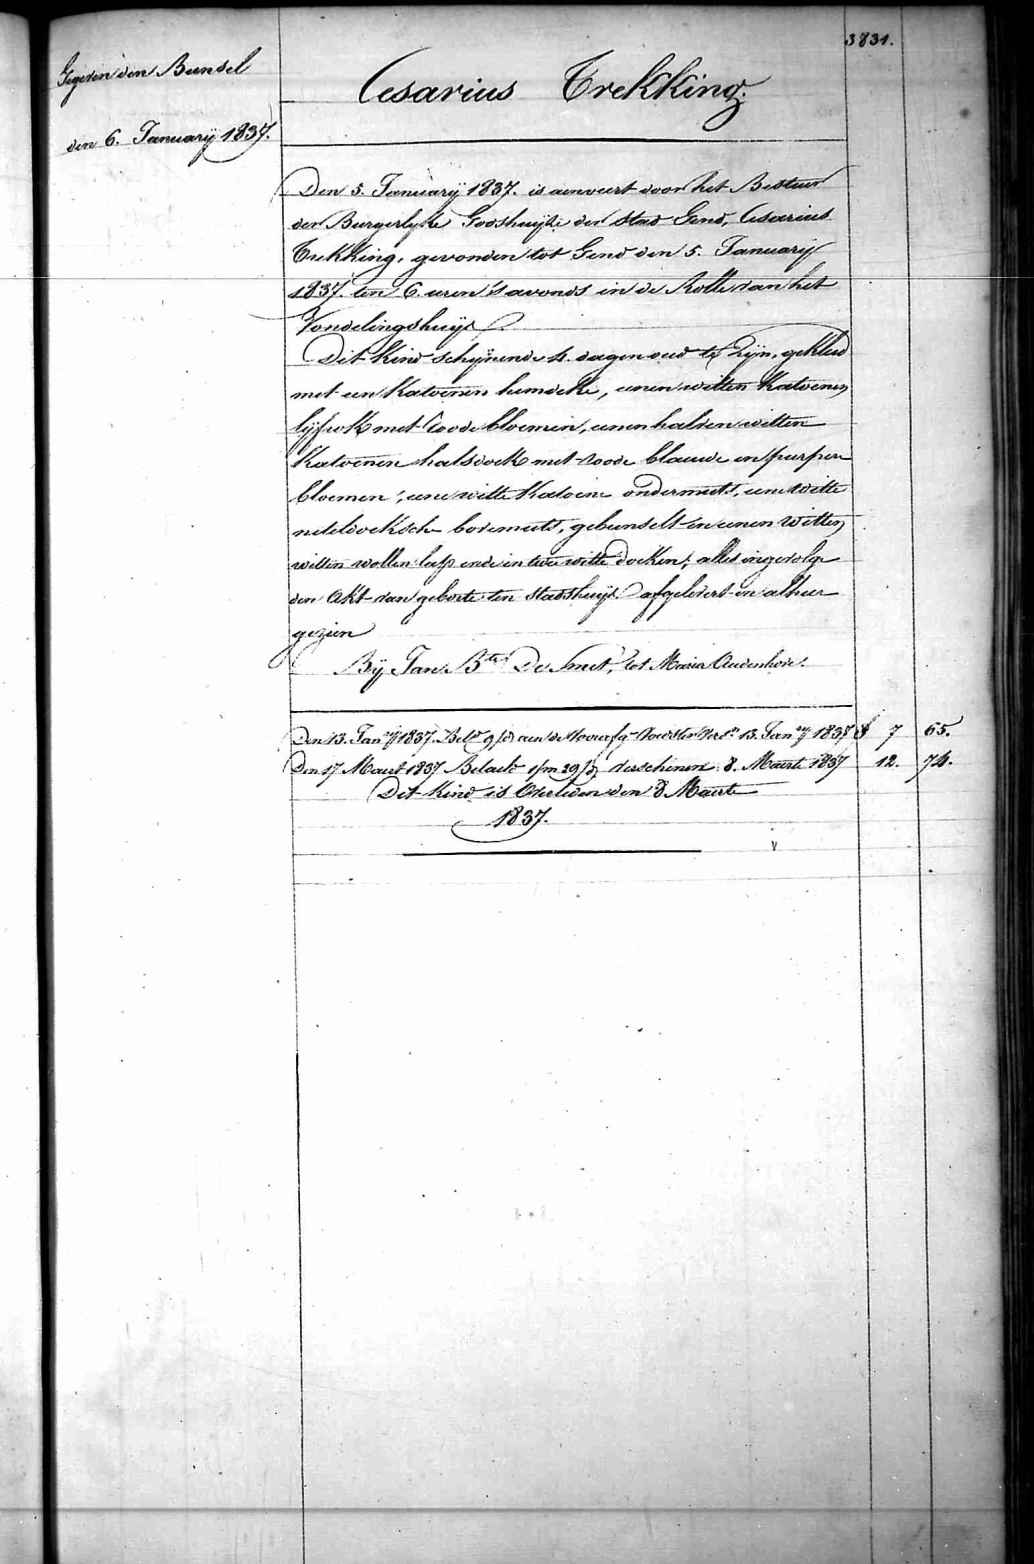 3831.
Gegeven den Bundel
den 6. January 1837.
Cesarius Trekking.
Den 5. January 1837. is aenveert door het Bestuur
der Burgerlyke Godshuijze der stad Gend, Cesarius
Trekking, gevonden tot Gend den 5. January
1837. ten 6. uren 's avonds in de Rolle van het
Vondelingshuijs
Dit kind schynende 4. dagen oud te zyn, gekleed
met een katoenen hemdeke, eenen witten katoenen
lyfrok met roode bloemen, eenen halven witten
katoenen halsdoek met roode blauwe en purpere
bloemen, eene witte katoene ondermuts, eene witte
neteldoeksche bovemuts, gebunselt in eenen witten
witten wollen lap ende in twee witte doeken; alles ingevolge
den Akt van geboorte ten stadshuijs afgelevert en alhier
gezien
Bij Jan Bte De Smet, tot Maria Audenhove.
Den 13. Jany 1837. Belt 9 fd aen de Voedster Verst 13. Jany 1837 f 7 65.
Den 17 Maert 1837 Betaelt 1/m 29/d verschenen 8. Maerte 1837 12. 74.
Dit Kind is Overleden den 8 Maerte
1837.